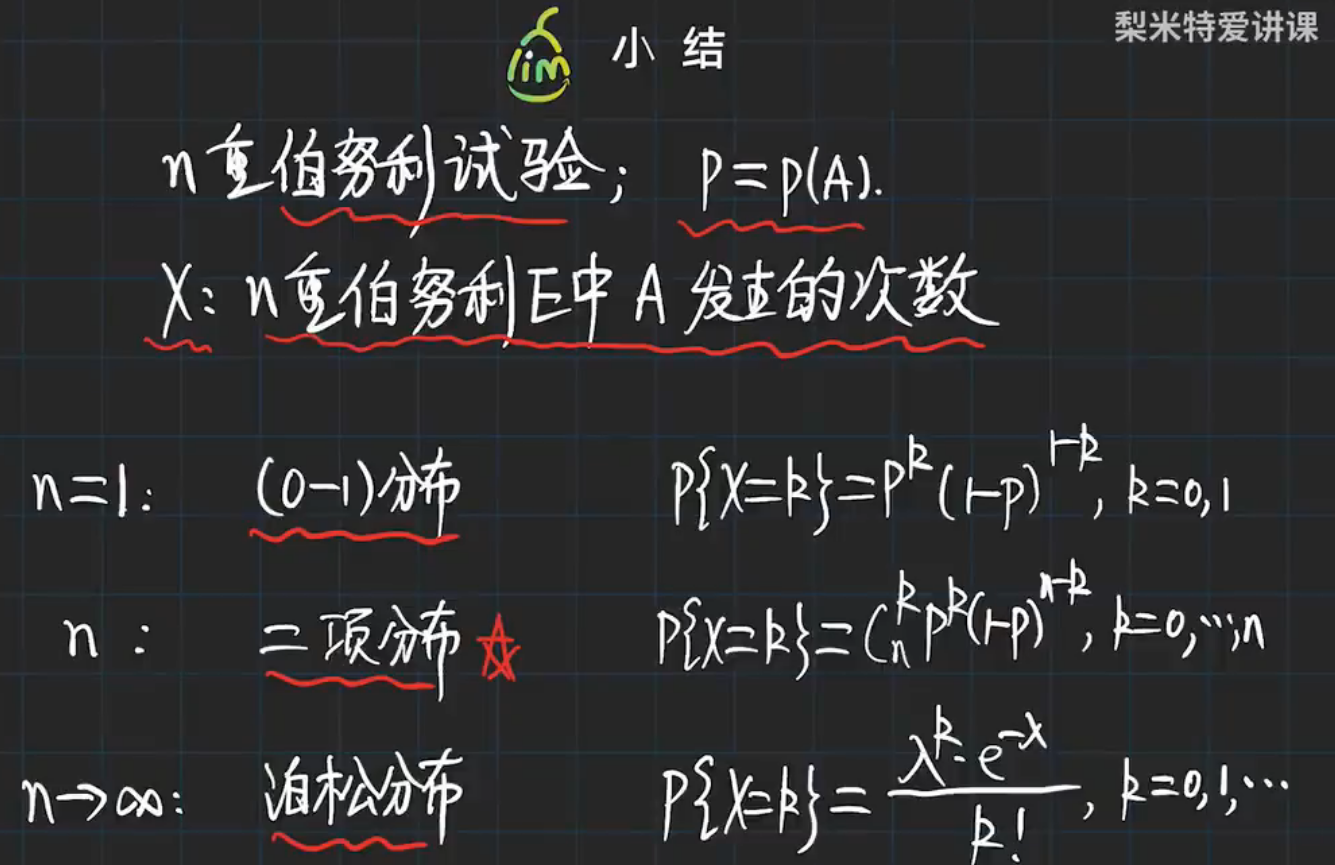 梨米特爱讲课
lim 小结
n重伯努利试验; P=P(A).
X: n重伯努利E中A发生的次数
n=1: (0-1)分布 P{X=k}=P^k(1-P)^{1-k}, k=0,1
n: 二项分布 ☆ P{X=k}=C_n^k P^k(1-P)^{n-k}, k=0,…,n
n→∞: 泊松分布 P{X=k}=\frac{λ^k·e^{-λ}}{k!}, k=0,1,…